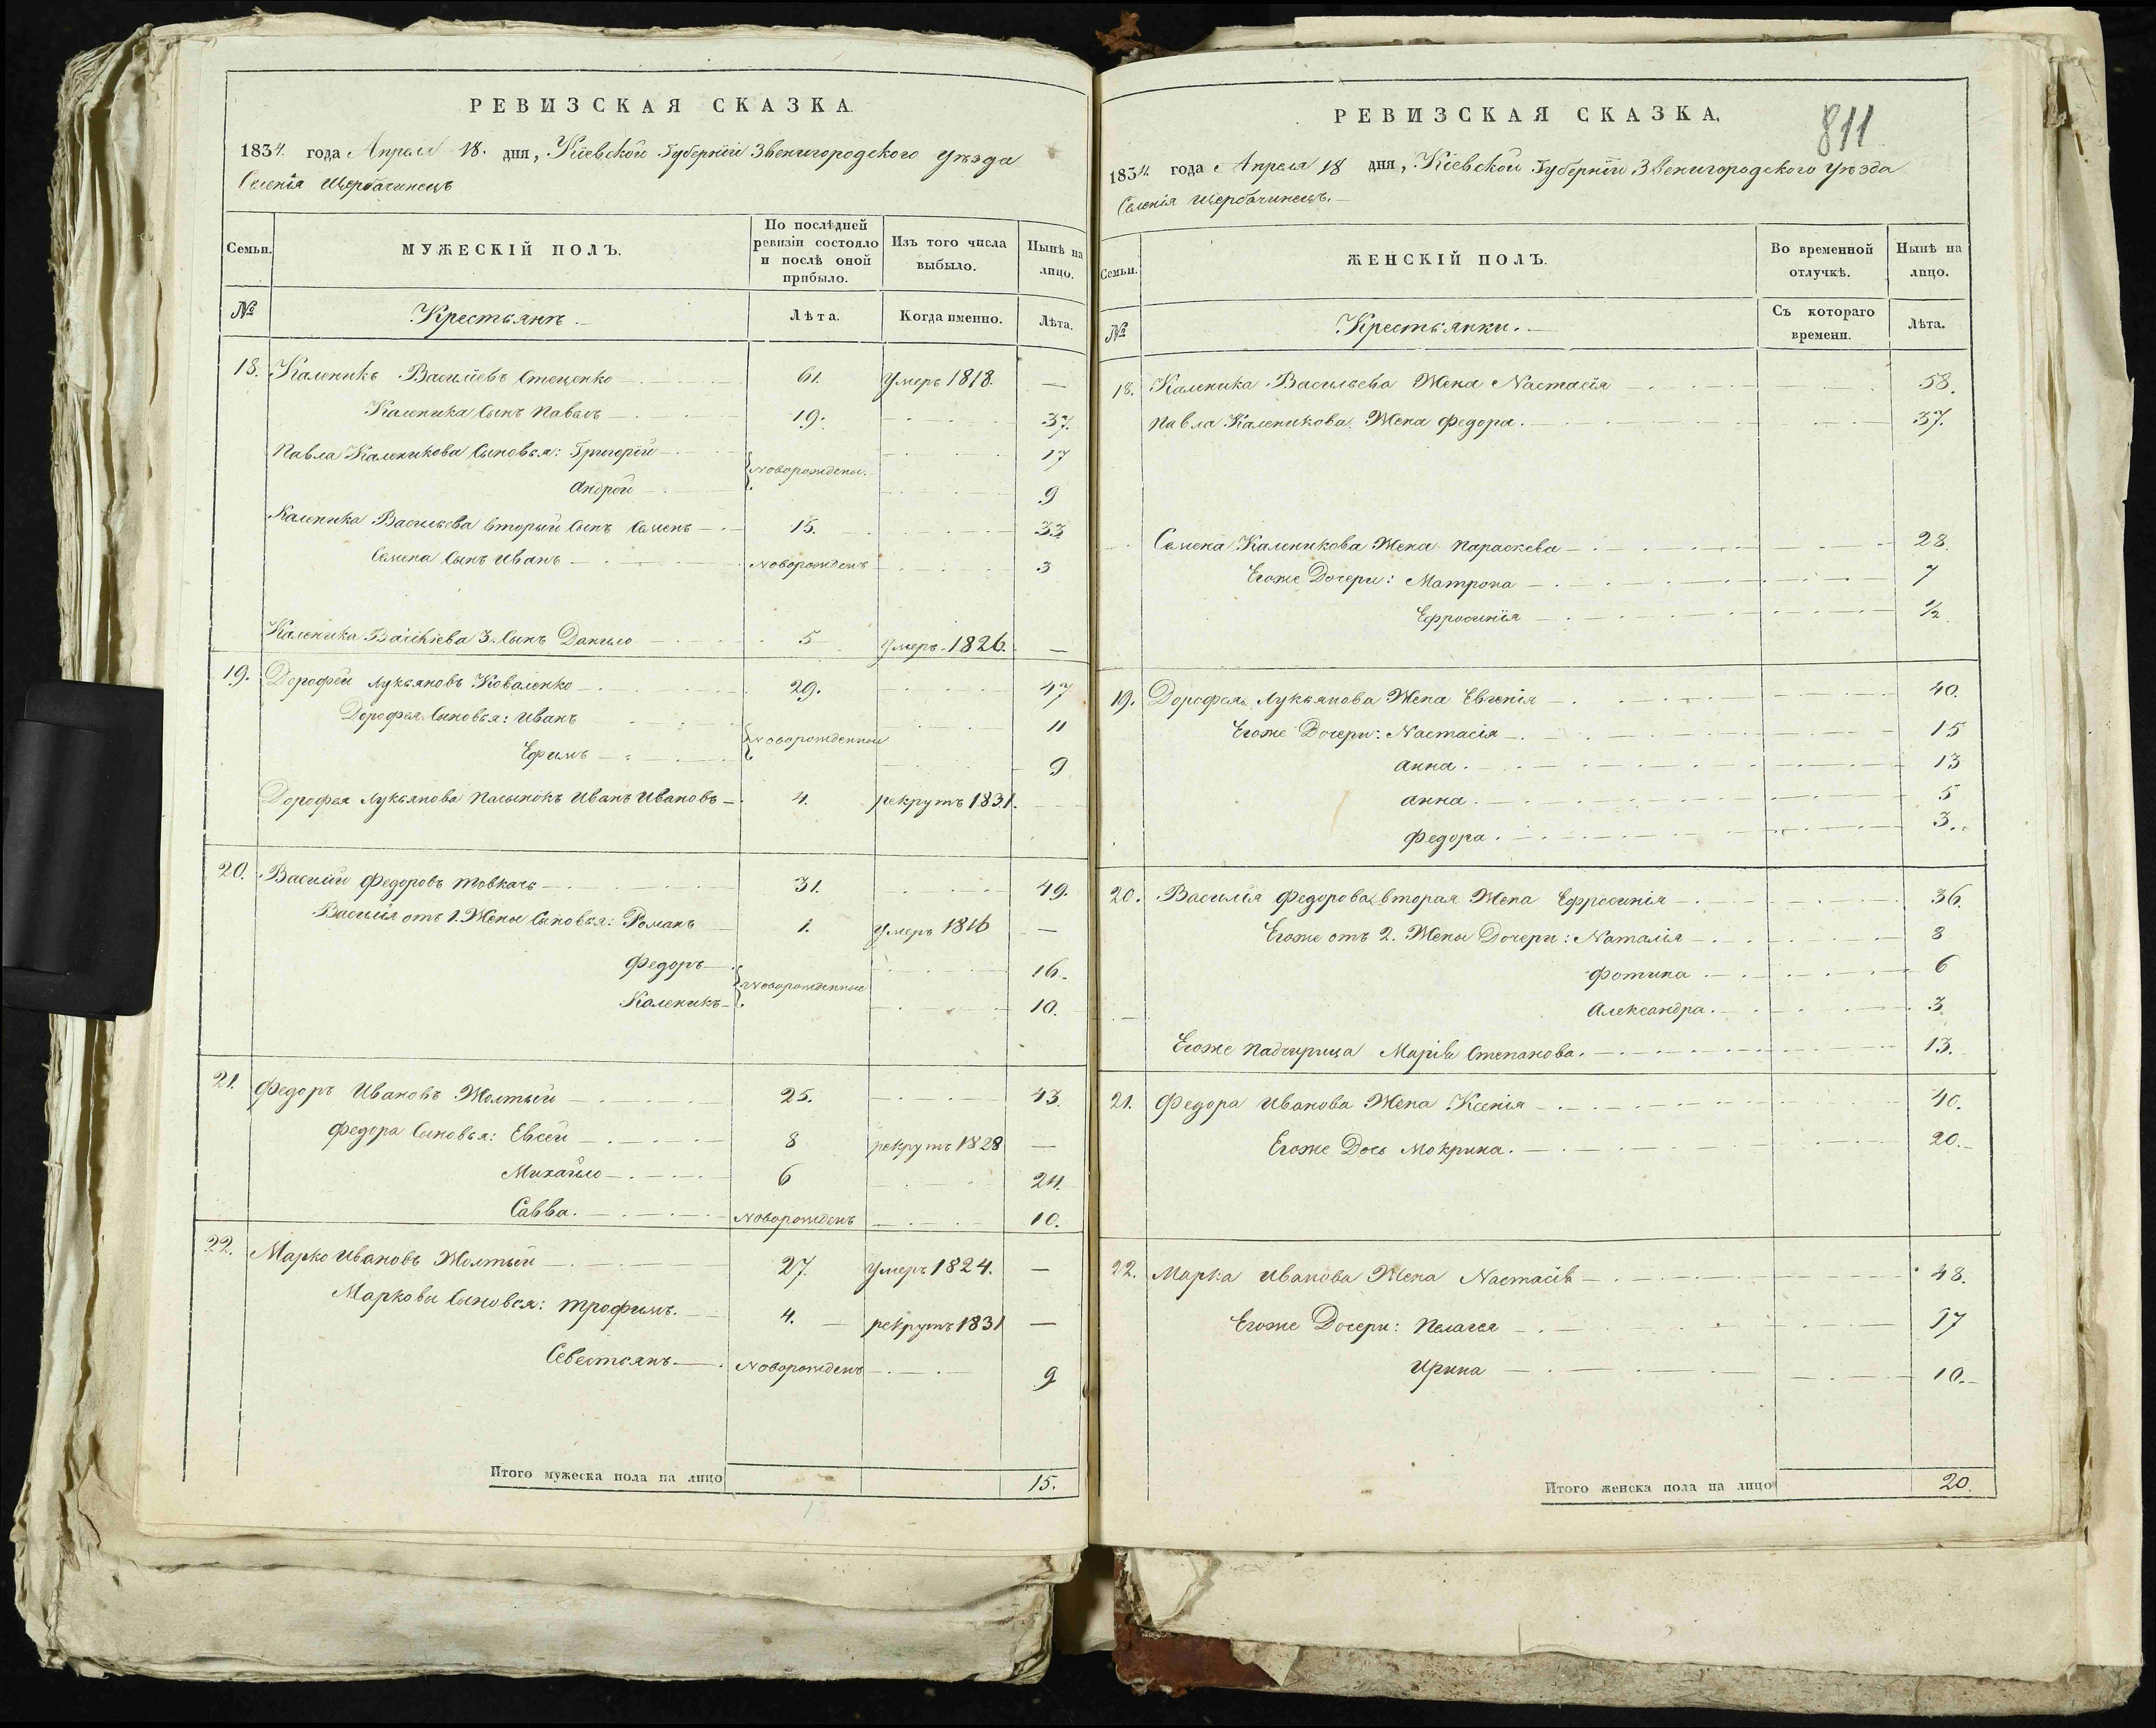 РЕВИЗСКАЯ СКАЗКА.
1834. года Апреля 18. дня, Кіевской Губерніи Звенигородского уѣзда
Селенія Щербачинецъ
Семьи. МУЖЕСКІЙ ПОЛЪ. По послѣдней ревизіи состояло и послѣ оной прибыло. Изъ того числа выбыло. Нынѣ на лицо.
№ Крестьянъ. Лѣта. Когда именно. Лѣта.
18. Каленикъ Василіевъ Стеценко 61. умеръ 1818. —
Каленика Сынъ Павелъ 19. 37.
Павла Каленикова Сыновья: Григорій новорождены. 17
Андрей 9
Каленика Васильева вторый Сынъ Семенъ 15. 33
Семена Сынъ Иванъ новорожденъ 3
Каленика Василіева 3. Сынъ Данило 5 умеръ 1826. —
19. Дорофей Лукьяновъ Коваленко 29. 47
Дорофея Сыновья: Иванъ новорожденныи 11
Ефимъ 9
Дорофея Лукьянова пасынокъ Иванъ Ивановъ 4. рекрутъ 1831.
20. Василій Федоровъ Товкачъ 31. 49.
Василія отъ 1. Жены Сыновья: Романъ 1. умеръ 1816 —
Федоръ новорожденные 16.
Каленикъ 10.
21. Федоръ Ивановъ Жолтый 25. 43.
Федора Сыновья: Евсей 8 рекрутъ 1828 —
Михайло 6 24.
Савва. новорожденъ 10.
22. Марко Ивановъ Жолтый 27. умеръ 1824. —
Марковы Сыновья: Трофимъ. 4. рекрутъ 1831 —
Севестьянъ новорожденъ 9
Итого мужеска пола на лицо 15.
811
РЕВИЗСКАЯ СКАЗКА.
1834 года Апреля 18 дня, Кіевской Губерніи Звенигородского уѣзда
Селенія Щербачинецъ.
Семьи. ЖЕНСКІЙ ПОЛЪ. Во временной отлучкѣ. Нынѣ на лицо.
№ Крестьянки. Съ котораго времени. Лѣта.
18. Каленика Васильева Жена Настасія 58.
Павла Каленикова Жена Федора. 37.
Семена Каленикова Жена Параскева 28.
Егоже Дочери: Матрона 7
Ефросинія 1/2
19. Дорофея Лукьянова Жена Евгенія 40.
Егоже Дочери: Настасія 15
Анна. 13
Анна. 5
Федора. 3.
20. Василія Федорова вторая Жена Ефросинія 36.
Егоже отъ 2. Жены Дочери: Наталія 8
Фотина 6
Александра. 3.
Егоже Падчирица Марія Степанова. 13.
21. Федора Иванова Жена Ксенія 40.
Егоже Дочь Мокрина. 20.
22. Марка Иванова Жена Настасія 48.
Егоже Дочери: Пелагея 17
Ирина 10.
Итого женска пола на лицо 20.